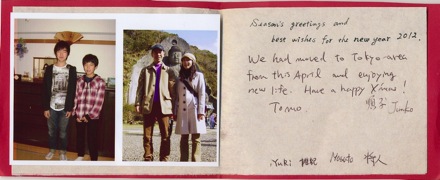 Season's greetings and
best wishes for the new year 2012.
We had moved to Tokyo-area
from this April and enjoying
new life. Have a happy Xmas!
Tomo. 順子 Junko
Yuki 祐紀 Masato 将人